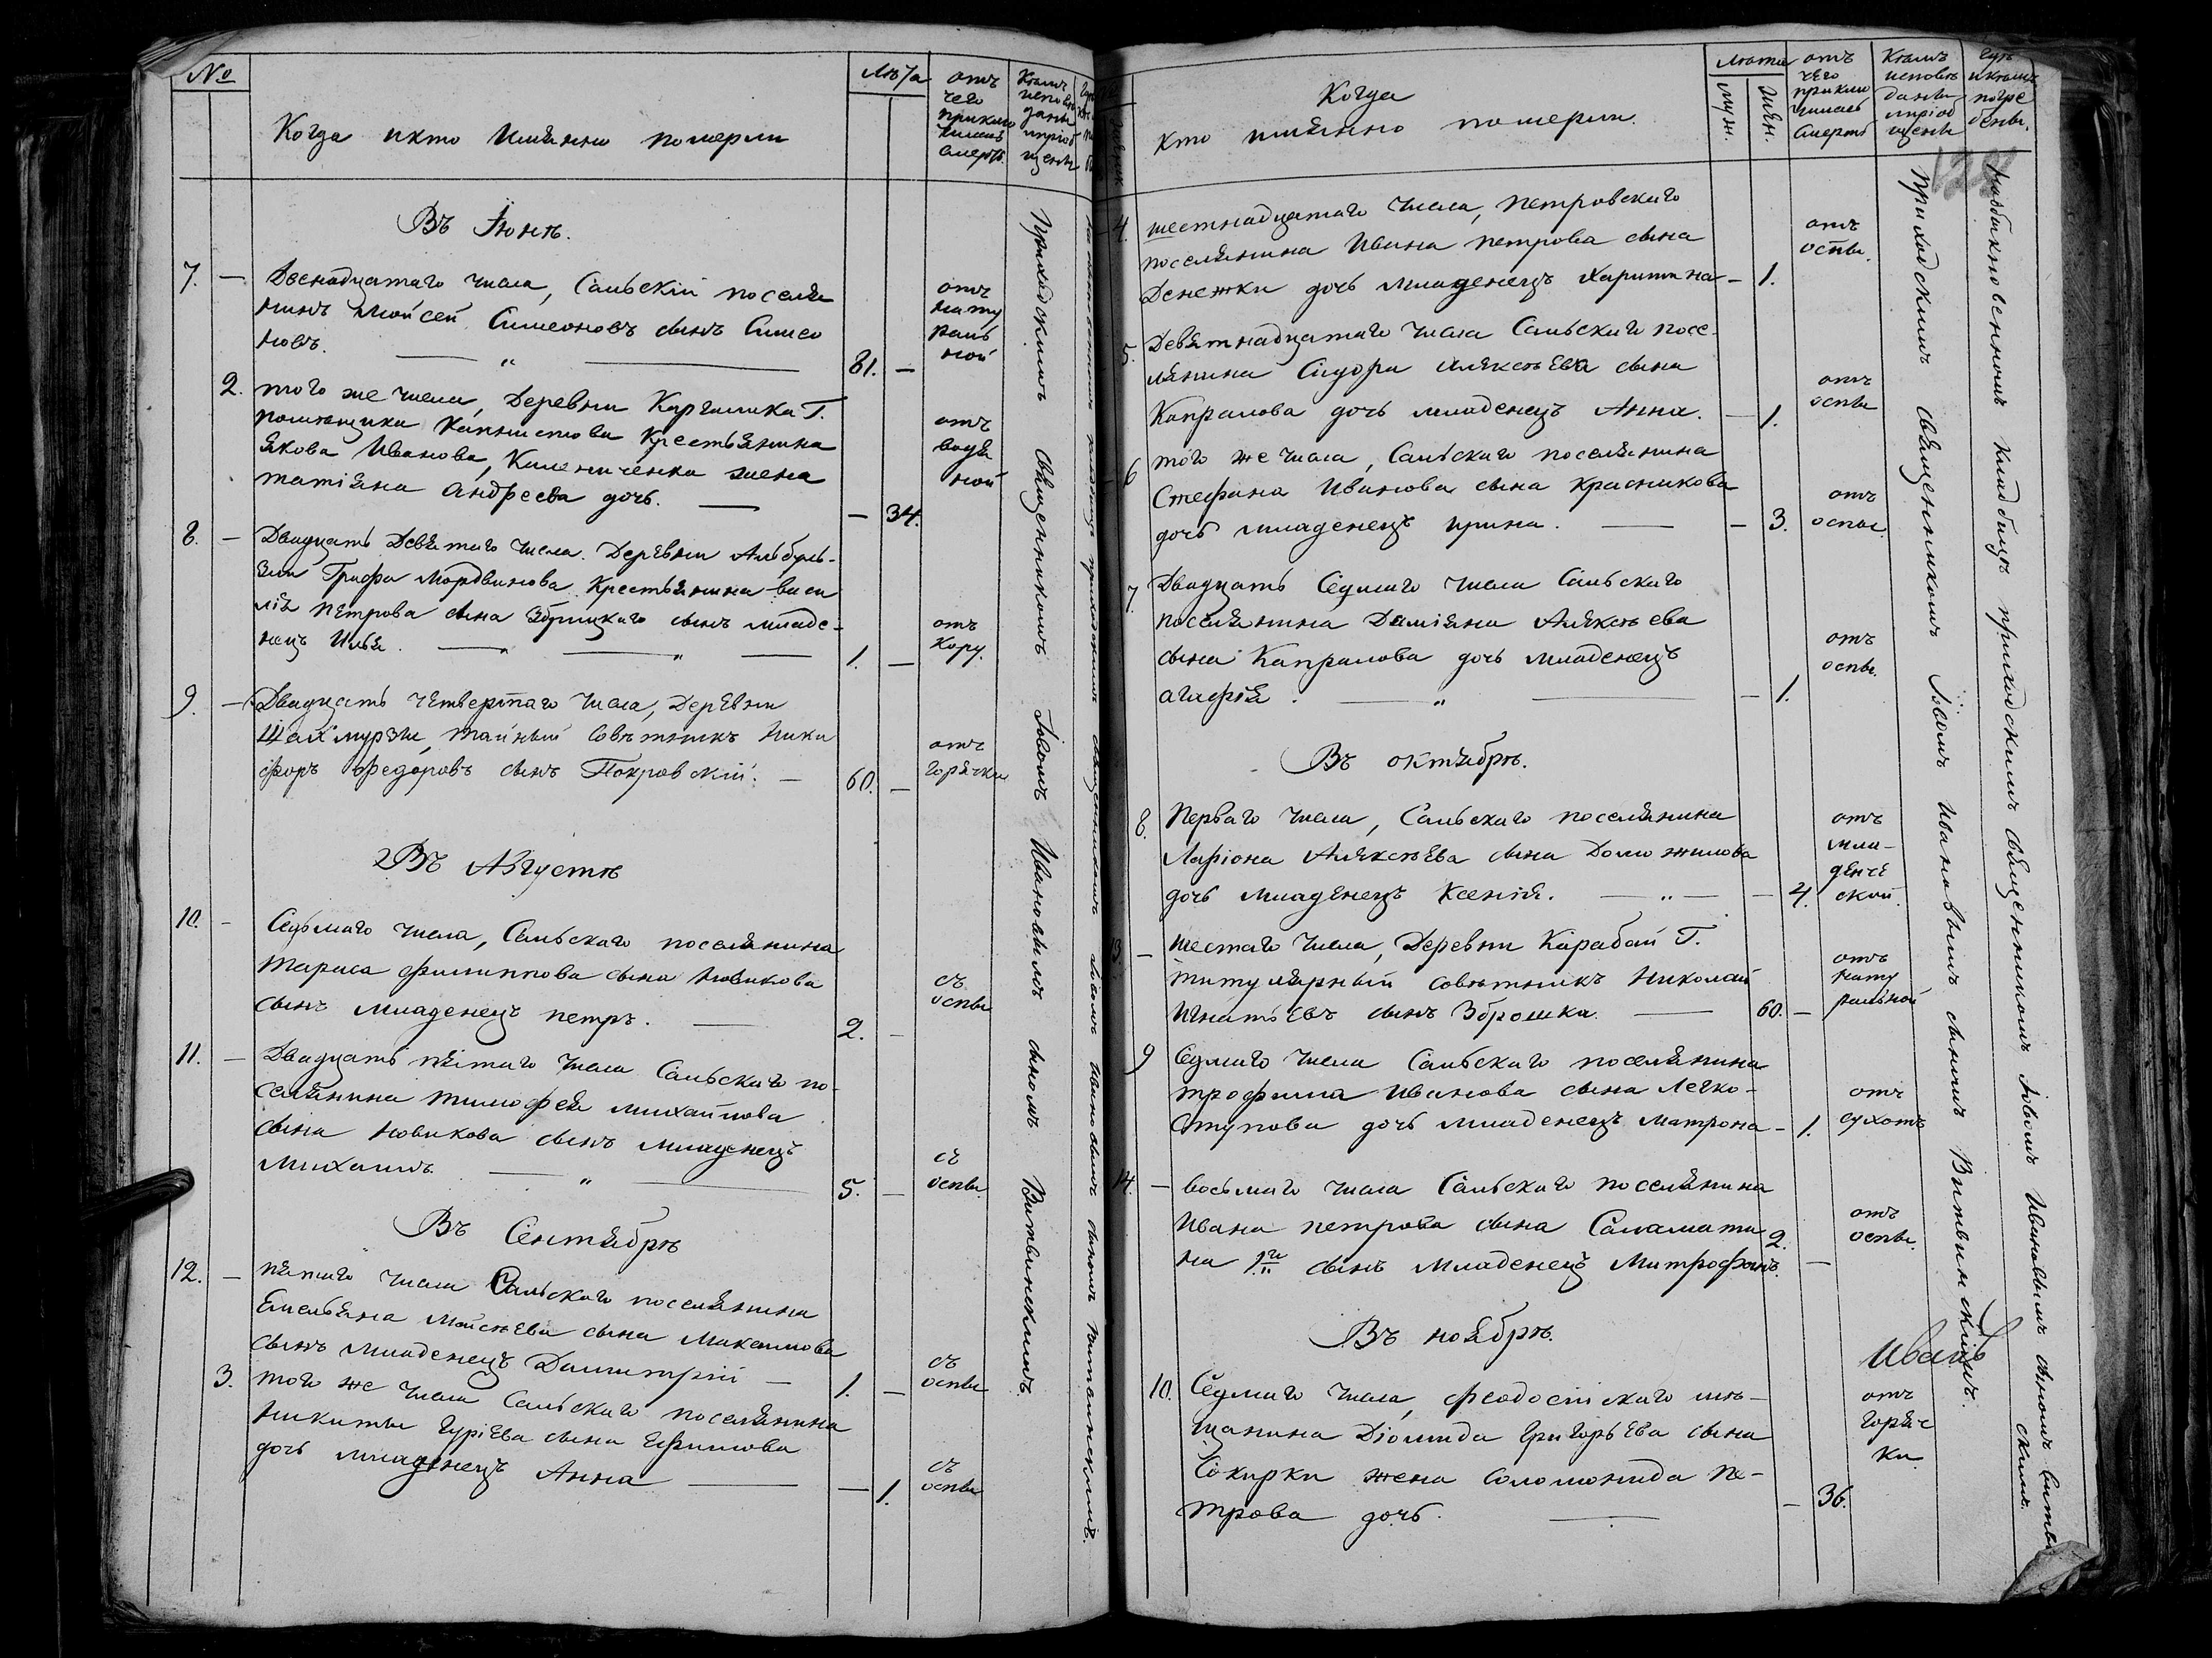 №
Когда икто Имѣнно померли
Лѣта
отъ
чего
приклю
чилась
смерть
Кѣмъ
исповѣ
даны
ипріоб
щены
Въ Іюнѣ.
7. — Двенадцатаго числа, Сальскій поселя
нинъ Мойсей Симеоновъ сынъ Симео
новъ. — „ — 81. —
отъ
нату
раль
ной
2. того же числа, Деревни Каргалика Г.
помѣщика Капнистова Крестьянина
Якова Иванова, Калениченка жена
татіяна Андреева дочь. — — 34.
отъ
водя
ной
8. — Двадцать Девятаго числа. Деревни
Графа Мордвинова Крестьянина васи
лія Петрова сына Збрицкаго сынъ младе-
нецъ Илья. — „ — „ — 1. —
отъ
Кору.
9. — Двадцать четвертаго числа, Деревни
Шаймурзы, тайный Совѣтникъ Ники
форъ Федоровъ сынъ Покровскій. — 60. —
отъ
горячки
Въ Августѣ
10. — Седьмаго числа, Сальскаго поселянина
Тараса Филиппова сына Новикова
сынъ младенецъ петръ. — 2. —
съ
оспы
11. — Двадцать пятаго числа Сальскаго по-
селянина тимофея михайлова
сына новикова сынъ младенецъ
Михаилъ. — „ — 5. —
съ
оспы
Въ Сентябрѣ
12. — пятаго числа Сальскаго поселянина
Емельяна Мойсѣева сына Максимова
сынъ младенецъ Димитрій — 1. —
съ
оспы
3. того же числа Сальскаго поселянина
никиты Гуріева сына Ефимова
дочь младенецъ Анна — — 1.
съ
оспы
Приходскимъ Священникомъ Іовомъ Ивановымъ сыномъ Витвинскимъ.
Когда
кто имѣнно померли.
Лѣта
муж.
жен.
отъ
чего
приклю
чилась
смерть
Кѣмъ
исповѣ
даны
ипріоб
щены
Гдѣ
икѣмъ
погре
бены.
4. шестнадцатаго числа, петровскаго
поселянина Ивана петрова сына
Денежки дочь младенецъ Харитина — 1.
отъ
оспы.
5. Девятнадцатаго числа Сальскаго посе-
лянина Сидора Алексѣева сына
Капралова дочь младенецъ Анна. — 1.
отъ
оспы
6 того же числа, Сальскаго поселянина
Стефана Иванова сына Красникова
дочь младенецъ ирина. — — 3.
отъ
оспы.
7. Двадцать Седмаго числа Сальскаго
поселянина Даміяна Алексѣева
сына Капралова дочь младенецъ
агафія. — „ — — 1.
отъ
оспы.
Въ октябрѣ.
8. Перваго числа, Сальскаго поселянина
Ларіона Алексѣева сына Доможилова
дочь младенецъ Ксенія. — „ — — 4.
отъ
мла-
денче
ской.
13. — шестаго числа, Деревни Карабай Г.
титулярный совѣтникъ Николай
Игнатьевъ сынъ Зброшка. — 60. —
отъ
нату
ральной
9 Седмаго числа Сальскаго поселянина
трофима Иванова сына Легко-
ступова дочь младенецъ Матрона — 1.
отъ
сухотъ
14. — восьмаго числа Сальскаго поселянина
Ивана петрова сына Саламати
на 1го сынъ младенецъ Митрофанъ. 2. —
отъ
оспы.
Въ ноябрѣ.
10. Седмаго числа, феодосійскаго мѣ-
щанина Діомида Григорьева сына
Сокирки жена Соломонида пе-
трова дочь. — — 36.
отъ
горяч
ки.
Приходскимъ Священникомъ Іовомъ Ивановымъ сыномъ Витвинскимъ.
Иванъ
Наобыкновенномъ Кладбищѣ приходскимъ Священникомъ Іовомъ Ивановымъ сыномъ Витвин
скимъ.